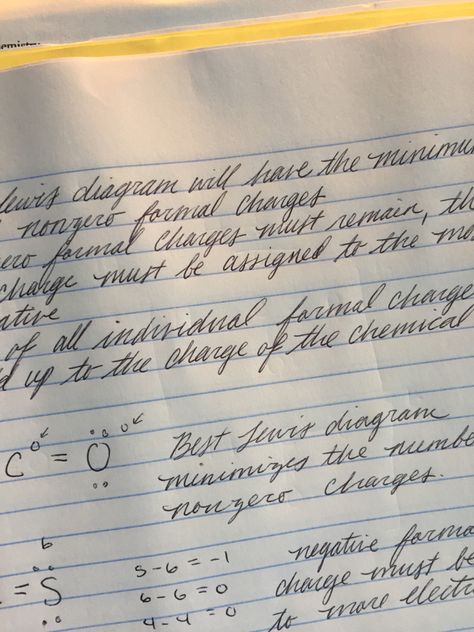 Lewis diagram will have the
nonzero formal charges
formal charges must remain,
charge must be assigned to the
of all individual formal charge
up to the charge of the chemical
C = O
Best Lewis diagram
minimizes the
nonzero charges.
6
= S
5-6 = -1
6-6 = 0
4-4 = 0
negative
charge must be
to more